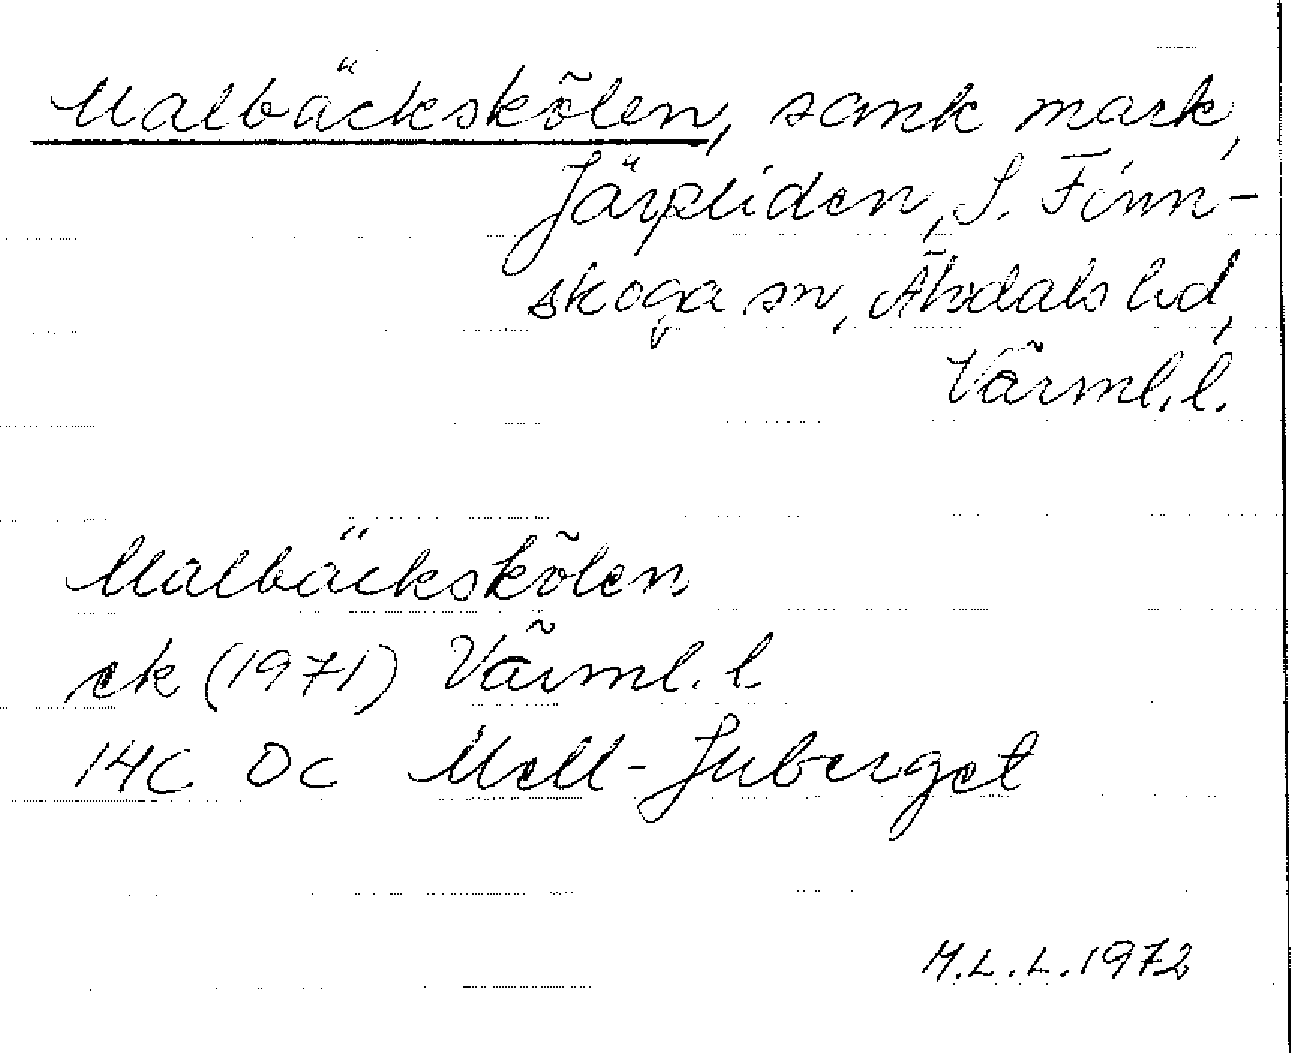 Malbäckskölen, sank mark,
Järpliden, S. Finn-
skoga sn, Älvdals hd,
Värml. l.
Malbäckskölen
ek (1971) Värml. l
14C 0c Mell-Juberget
M.L.L. 1972